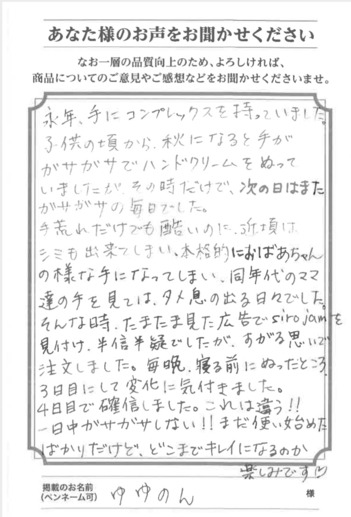 あなた様のお声をお聞かせください
なお一層の品質向上のため、よろしければ、
商品についてのご意見やご感想などをお聞かせくださいませ。
永年、手にコンプレックスを持っていました。
子供の頃から、秋になると手が
ガサガサでハンドクリームをぬって
いましたが、その時だけで、次の日はまた
ガサガサの毎日でした。
手荒れだけでも酷いのに、近頃は
シミも出来てしまい、本格的におばあちゃん
の様な手になってしまい、同年代のママ
達の手を見ては、タメ息の出る日々でした。
そんな時、たまたま見た広告でsiro jamを
見付け、半信半疑でしたが、すがる思いで
注文しました。毎晩、寝る前にぬったところ、
3日目にして変化に気付きました。
4日目で確信しました。これは違う!!
一日中ガサガサしない!!まだ使い始めた
ばかりだけど、どこまでキレイになるのか
楽しみです♡
掲載のお名前
(ペンネーム可)
ゆゆのん
様